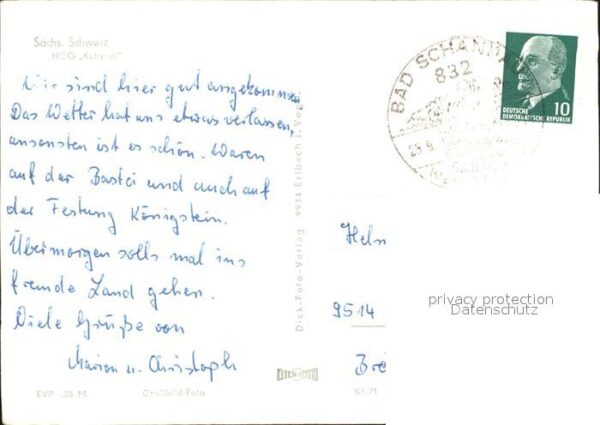 Sächs. Schweiz
HOG „Kuhstall“
Wir sind hier gut angekommen
Das Wetter hat uns etwas verlassen,
ansonsten ist es schön. Waren
auf der Bastei und auch auf
der Festung Königstein.
Übermorgen solls mal ins
fremde Land gehen.
Viele Grüße von
Marion u. Christoph
EVP -,25 M
Großbild-Foto
Dick-Foto-Verlag 9934 Erlbach i. Vogtl.
DICK
K1 71
BAD SCHANDAU
832
DEUTSCHE
DEMOKRATISCHE REPUBLIK
10
Helm
9514
privacy protection
Datenschutz